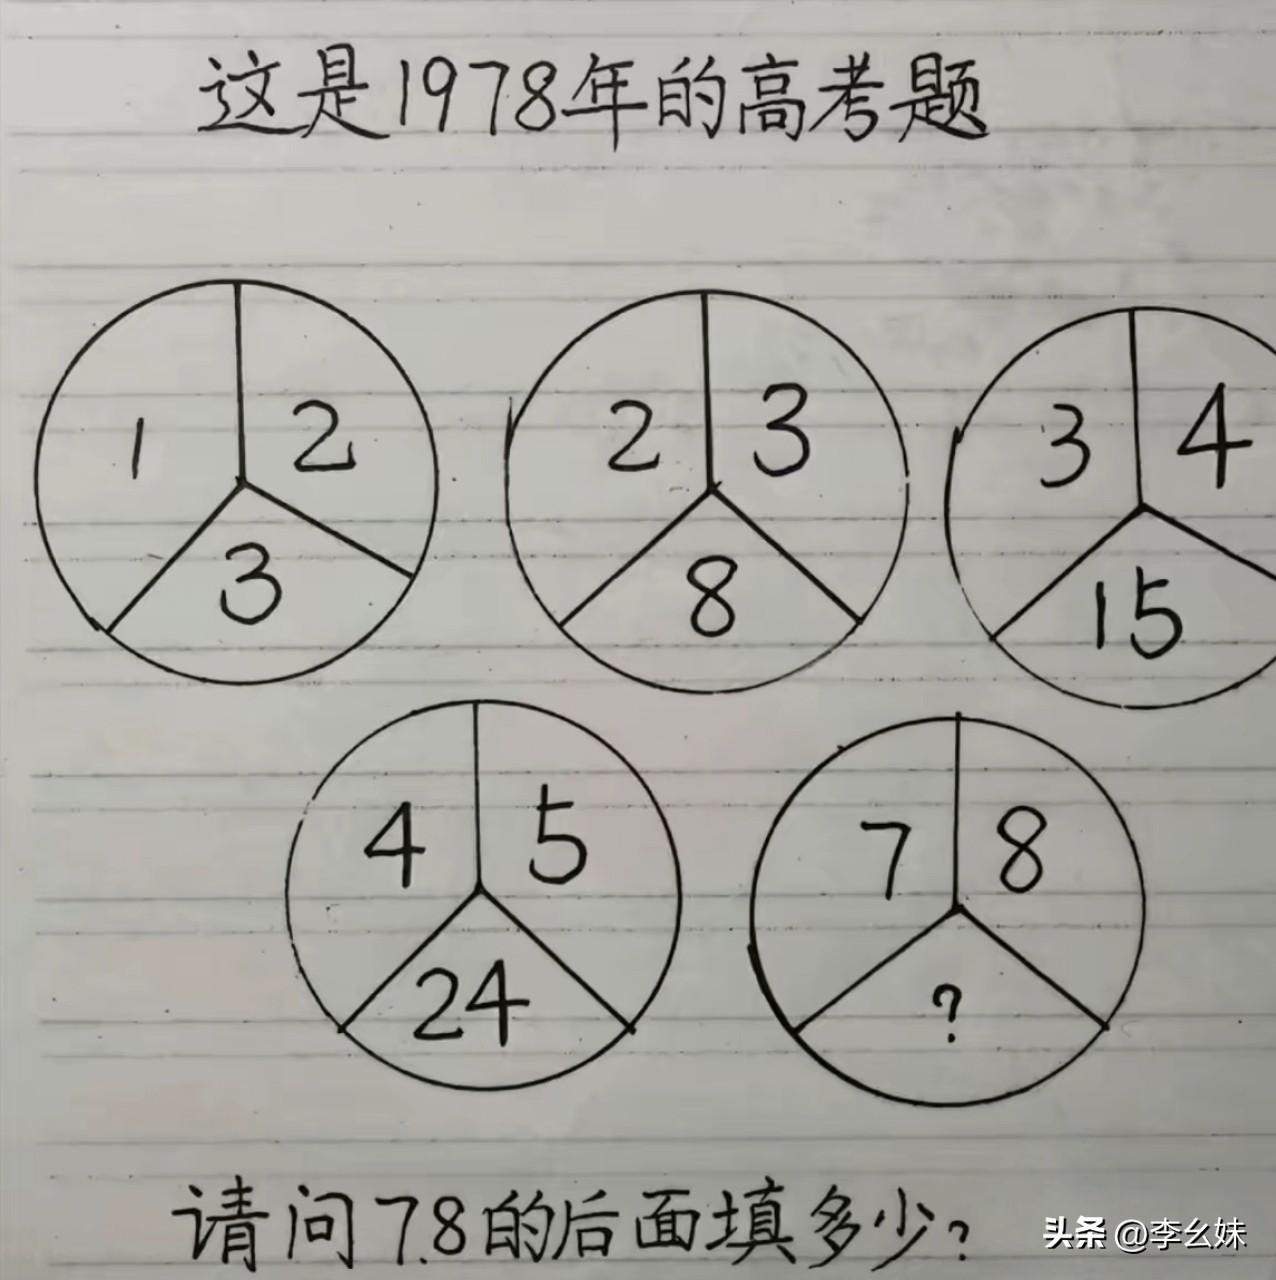 这是1978年的高考题
1 2 2 3 3 4
3 8 15
4 5 7 8
24 ?
请问7.8的后面填多少?
头条 @李幺妹